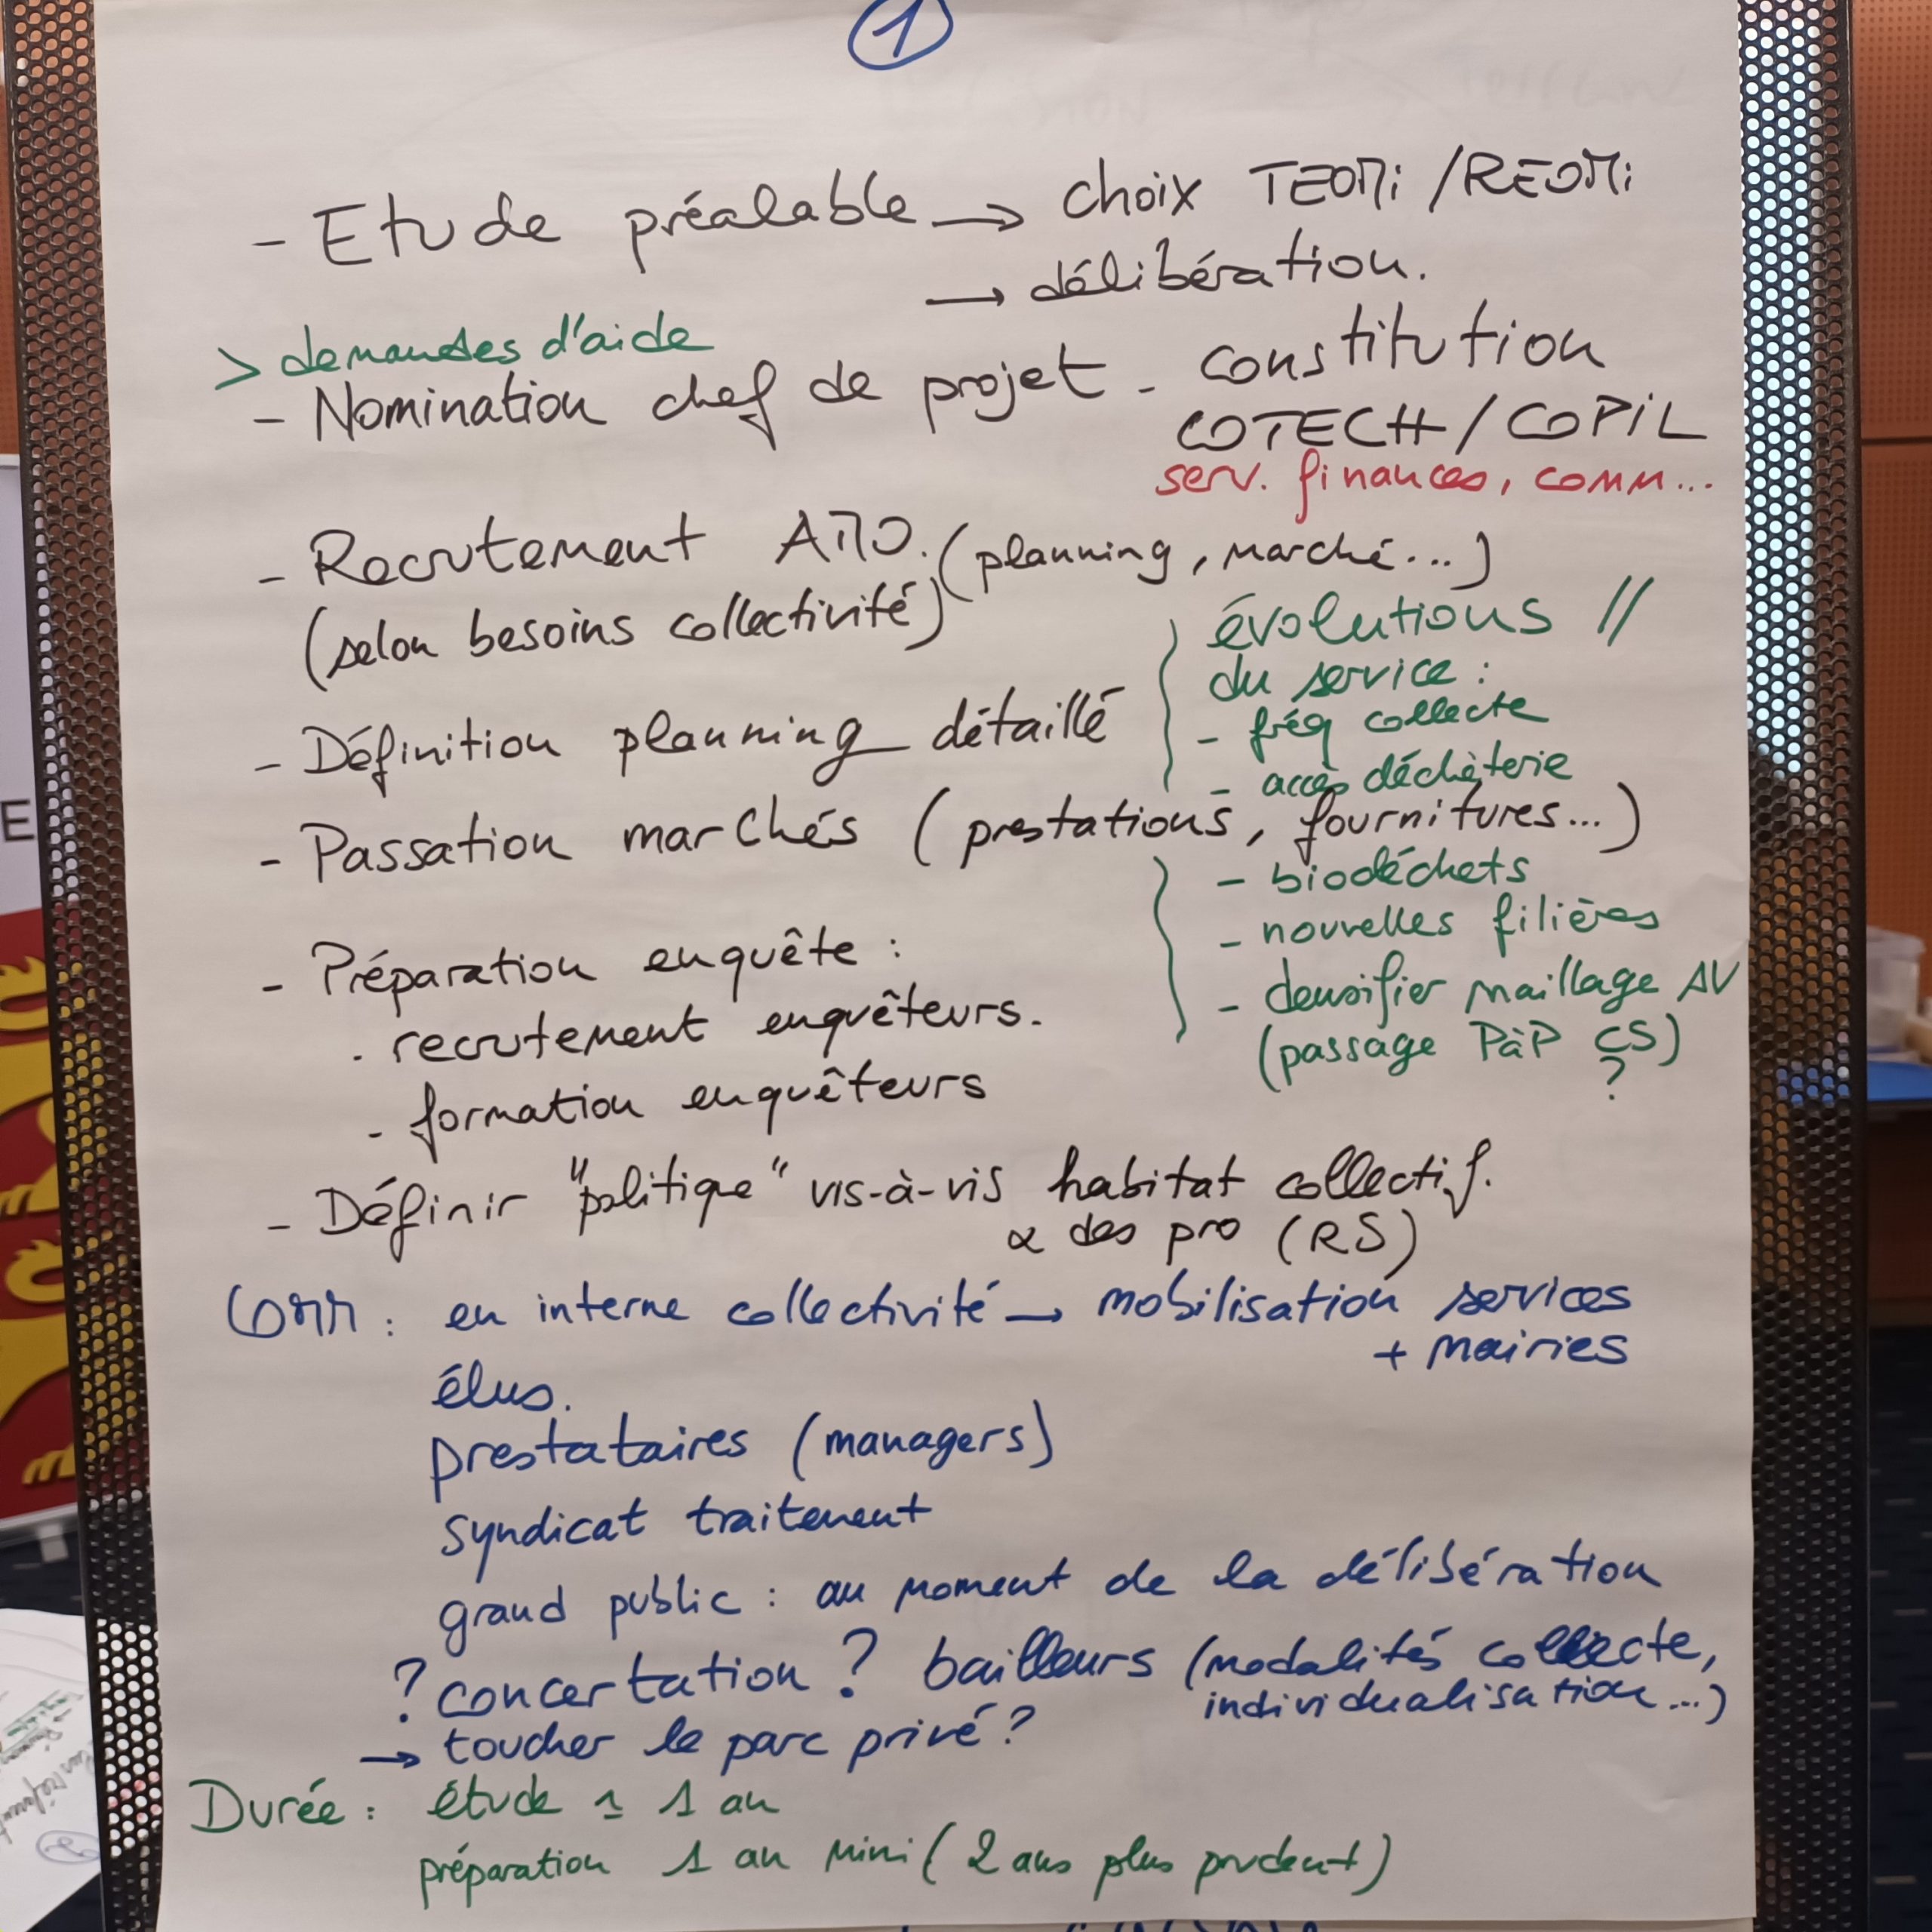 1
- Etude préalable → choix TEOMi / REOMi
→ délibération.
> demandes d'aide
- Nomination chef de projet - constitution
COTECH / COPiL
serv. finances, comm...
- Recrutement AMO. (planning, marché...)
(selon besoins collectivité)
évolutions //
du service :
- fréq collecte
- accès déchèterie
- Définition planning détaillé
- Passation marchés (prestations, fournitures...)
- biodéchets
- nouvelles filières
- densifier maillage AV
(passage PàP CS)
?
- Préparation enquête :
. recrutement enquêteurs.
- formation enquêteurs
- Définir "politique" vis-à-vis habitat collectif.
& des pro (RS)
Com : en interne collectivité → mobilisation services
+ mairies
élus.
prestataires (managers)
syndicat traitement
grand public : au moment de la délibération
? concertation ? bailleurs (modalités collecte,
individualisation...)
→ toucher le parc privé ?
Durée : étude ≃ 1 an
préparation 1 an mini (2 ans plus prudent)
E